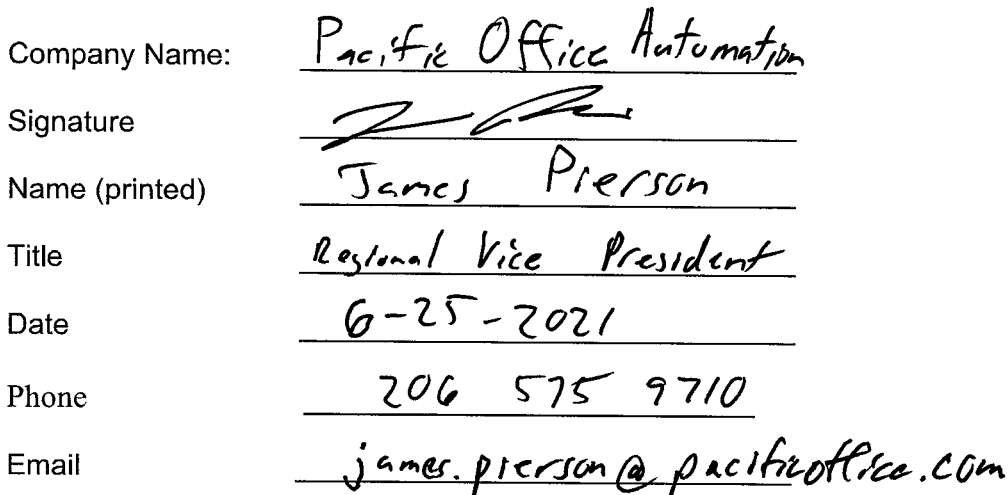 Company Name: Pacific Office Automation
Signature
Name (printed) James Pierson
Title Regional Vice President
Date 6-25-2021
Phone 206 575 9710
Email james.pierson@pacificoffice.com